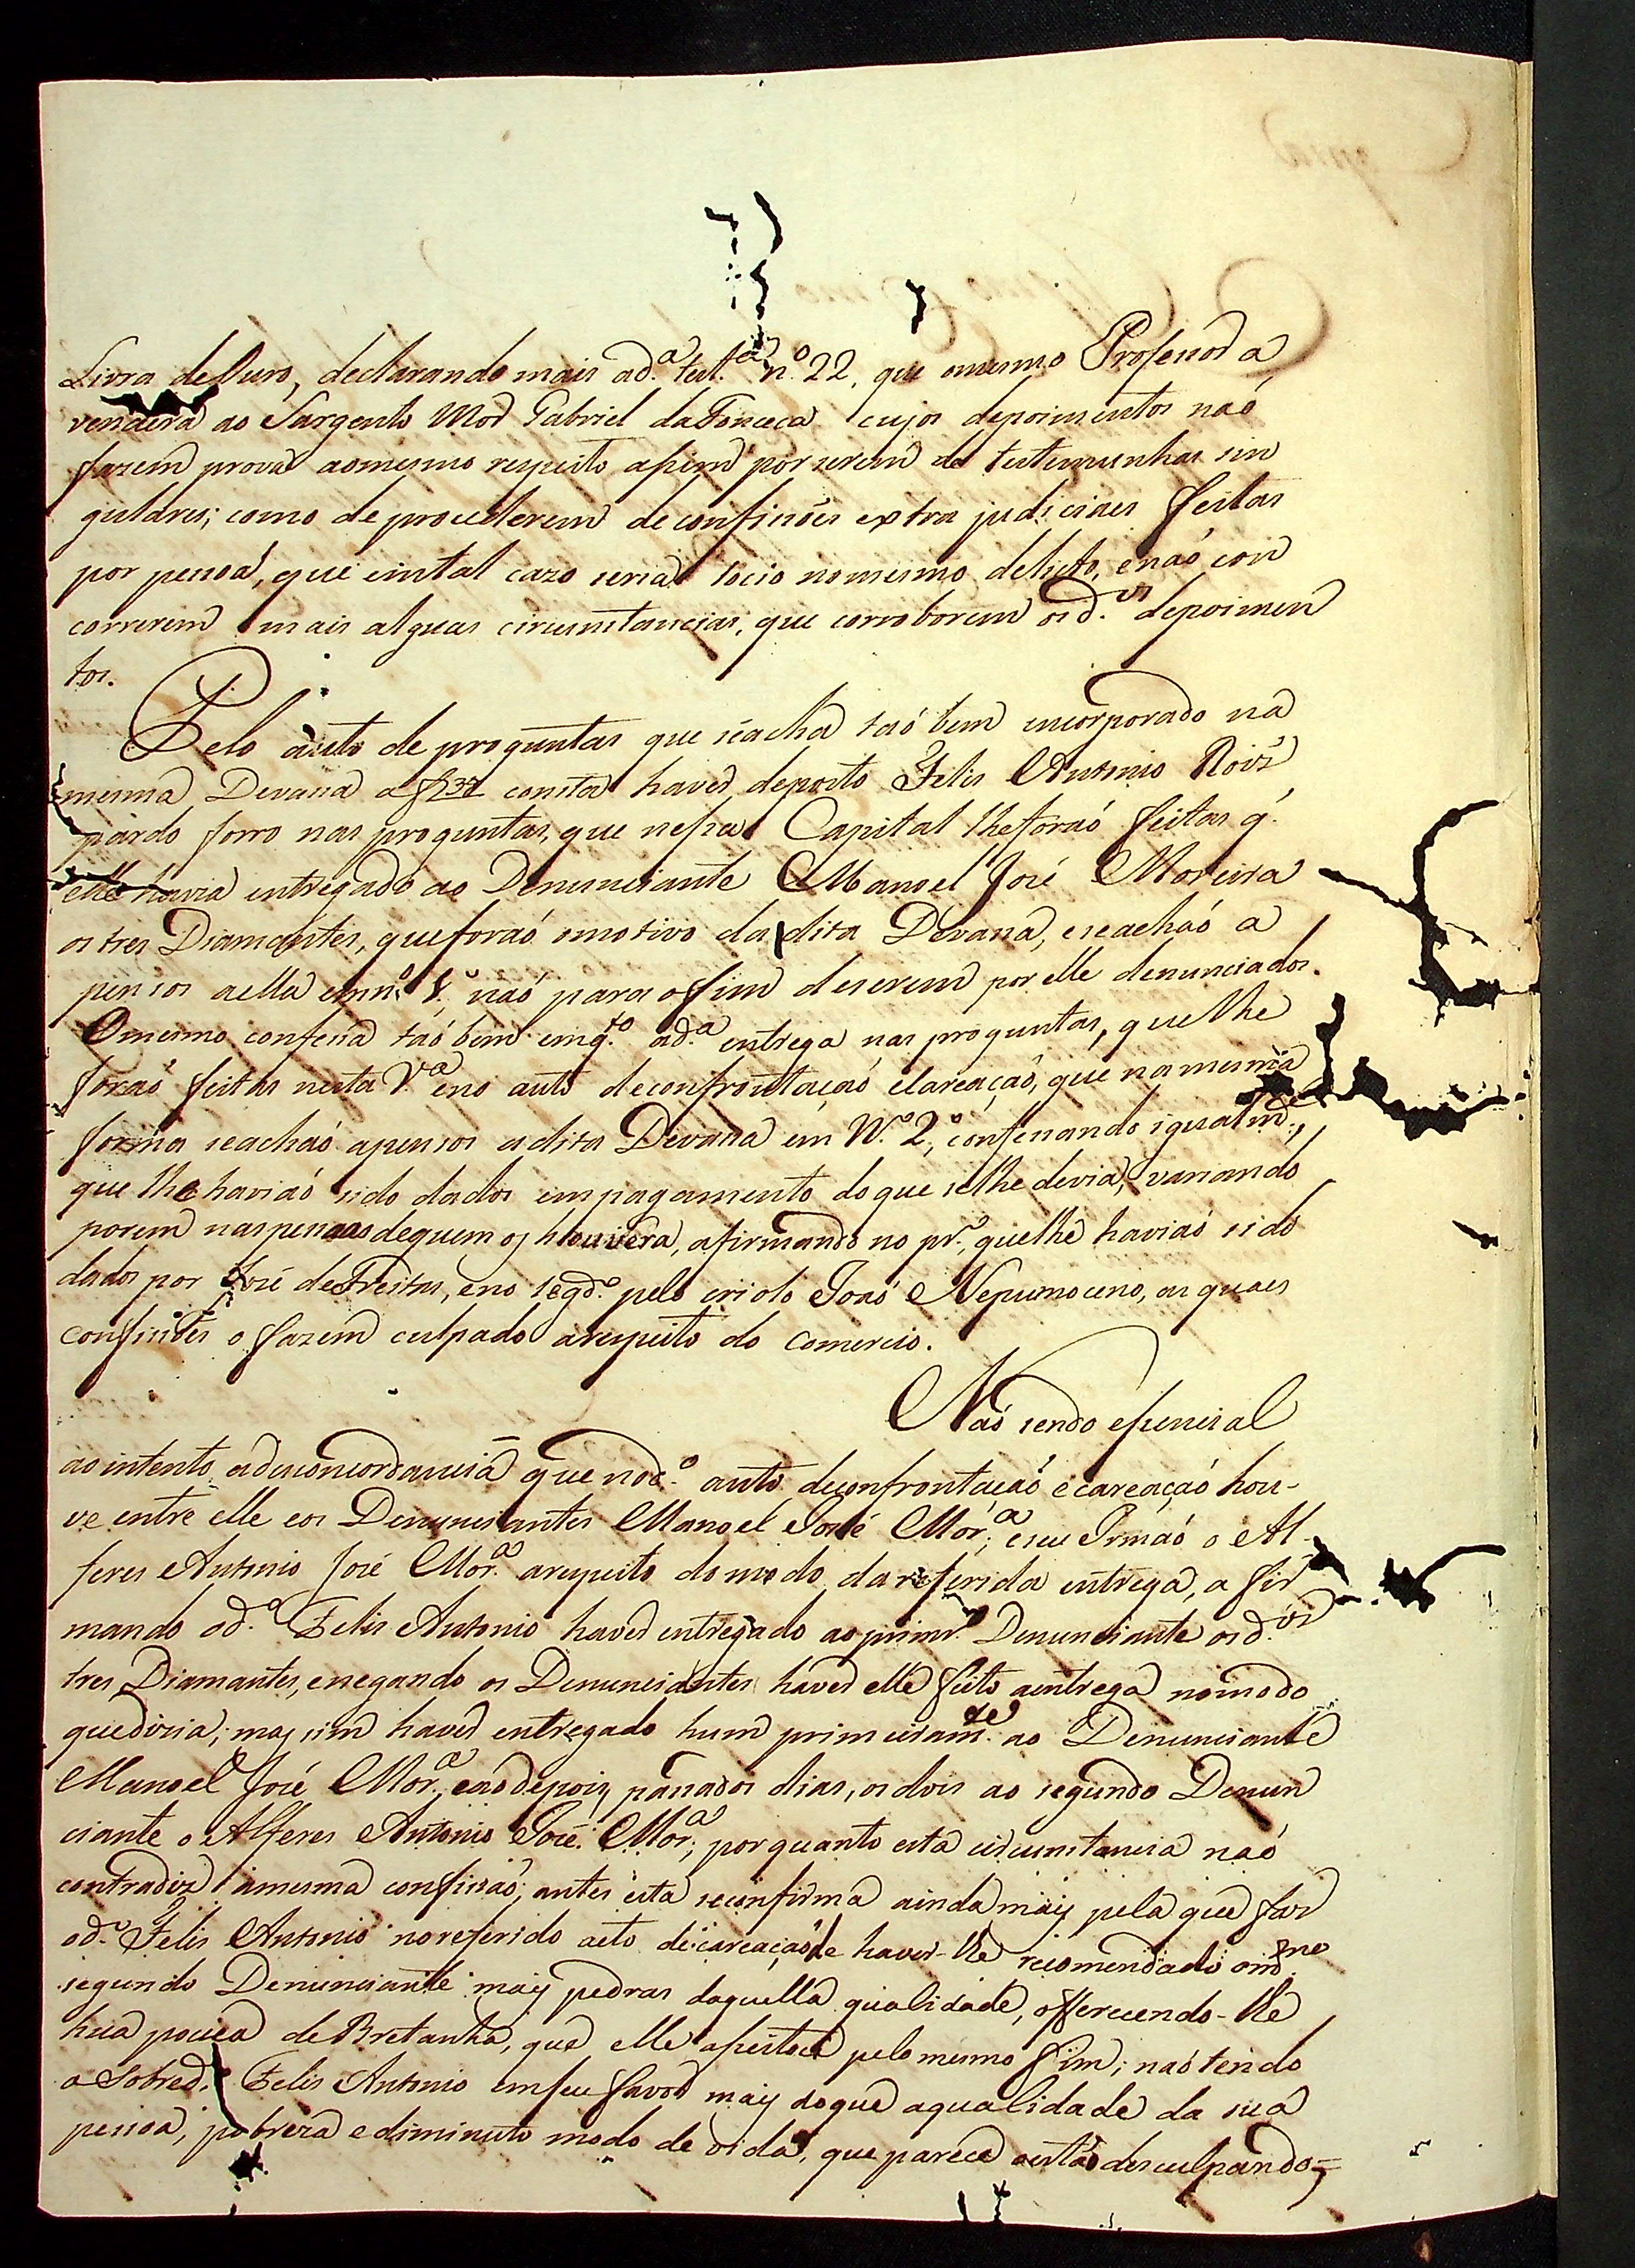 Livra de Ouro, declarando mais ad.ª test.ª n.º 22, que omesmo Professor a
vendera ao Sargento Mor Gabriel daFonceca cujos depoimentos naó
fazem prova aomesmo respeito assim por serem de testemunhas sin
gulares; como deprocederem deconfissoẽs extra judiciaes feitas
por pessoa, que emtal cazo seria socio nomesmo delicto, enaó con
correrem mais alguas circumstancias, que corroborem osd.os depoimen
tos.
Pelo auto de proguntas que seacha taó bem encorporado na
mesma Devassa a f 37 consta haver deposto Felis Antonio Roiz̃
pardo forro nas proguntas, que nessa Capital lheforaó feitas q̃
elle havia entregado ao Denunciante Manoel José Moreira
os tres Diamantes, queforaó omotivo da dita Devassa, eseachaó a
pensos aella emn.º 1.º naó para ofim deserem por elle denunciados.
Omesmo confessa taó bem emq.to ad.ª entrega nas proguntas, quelhe
foraó feitas nesta V.ª eno auto deconfrontaçaó eCareaçaó, que namesma
forma seachaó apensos adita Devassa em N.º 2.º, confessando igualm.e,
que lhe haviaó sido dados empagamento doque selhe devia, variando
porem naspessoas dequem os houvera, afirmando no pr.º, quelhe haviaó sido
dados por José deFreitas, eno segd.º pelo criolo Joaó Nepumoceno, as quaes
confissoẽs o fazem culpado arespeito do comercio.
Naó sendo essencial
ao intento adesconcordancia que nod.º auto deconfrontaçaó ecareaçaó hou-
ve entre elle eos Denunciantes Manoel José Mor.ª, eseu Irmaó o Al-
feres Antonio José Mor.ª arespeito domodo dareferida entrega, a fir
mando od.º Felis Antonio haver entregado ao primr.º Denunciante osd.os
tres Diamantes, enegando os Denunciantes haver elle feito aentrega nomodo
quedizia; mas sim haver entregado hum primeiram.te ao Denunciante
Manoel José Mor.ª, eaodepois passados dias, os dois ao segundo Denun
ciante o Alferes Antonio José Mor.ª; porquanto esta circumstancia naó
contradiz amesma confissaó; antes esta seconfirma ainda mais pela que faz
od.º Felis Antonio noreferido acto decareaçaó de haver-lhe recomendado omd.mo
segundo Denunciante mais pedras daquella qualidade, offerecendo-lhe
hua pouca de Bretanha, que elle afseitou pelo mesmo fim; naó tendo
o Sobred.º Felis Antonio emseu favor mais doque aqualidade da sua
pessoa, pobreza ediminuto modo de vida, que parece oestaó desculpando=